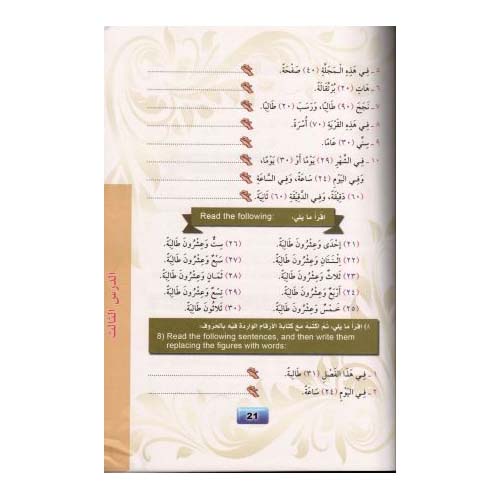 ٥ ـ فِي هَذِهِ الْمَجَلَّةِ (٤٠) صَفْحَةً.
٦ ـ هَاتِ (٢٠) بُرْتُقَالَةً.
٧ ـ نَجَحَ (٩٠) طَالِبًا، وَرَسَبَ (٢٠) طَالِبًا.
٨ ـ فِي هَذِهِ القَرْيَةِ (٧٠) أُسْرَةً.
٩ ـ سِنِّي (٣٠) عَامًا.
١٠ ـ فِي الشَّهْرِ (٢٩) يَوْمًا أَوْ (٣٠) يَوْمًا،
وَفِي اليَوْمِ (٢٤) سَاعَةً، وَفِي السَّاعَةِ
(٦٠) دَقِيْقَةً، وَفِي الدَّقِيْقَةِ (٦٠) ثَانِيَةً.
اقرأ ما يلي: Read the following:
(٢١) إِحْدَى وَعِشْرُونَ طَالِبَةً. (٢٦) سِتٌّ وَعِشْرُونَ طَالِبَةً.
(٢٢) اثْنَتَانِ وَعِشْرُونَ طَالِبَةً. (٢٧) سَبْعٌ وَعِشْرُونَ طَالِبَةً.
(٢٣) ثَلَاثٌ وَعِشْرُونَ طَالِبَةً. (٢٨) ثَمَانٍ وَعِشْرُونَ طَالِبَةً.
(٢٤) أَرْبَعٌ وَعِشْرُونَ طَالِبَةً. (٢٩) تِسْعٌ وَعِشْرُونَ طَالِبَةً.
(٢٥) خَمْسٌ وَعِشْرُونَ طَالِبَةً. (٣٠) ثَلَاثُونَ طَالِبَةً.
٨) اقرأ ما يلي، ثم اكتبه مع كتابة الأرقام الواردة فيه بالحروف:
8) Read the following sentences, and then write them
replacing the figures with words:
١ ـ فِي هَذَا الفَصْلِ (٣١) طَالِبَةً.
٢ ـ فِي اليَوْمِ (٢٤) سَاعَةً.
21
الدرس الثالث